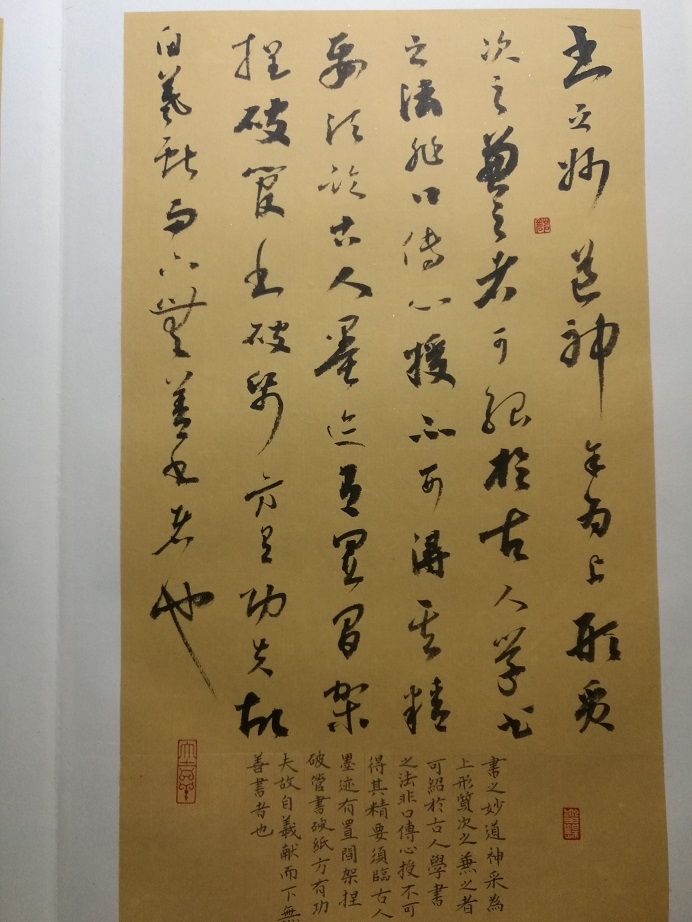 書之妙道神采為上形質
次之兼之者可紹於古人學書
之法非口傳心授不可得其精
要須臨古人墨迹有置間架
捏破管書破紙方有功夫故
自羲献而下無善書者也
書之妙道神采為
上形質次之兼之者
可紹於古人學書
之法非口傳心授不可
得其精要須臨古人
墨迹有置間架捏
破管書破紙方有功
夫故自羲献而下無
善書者也